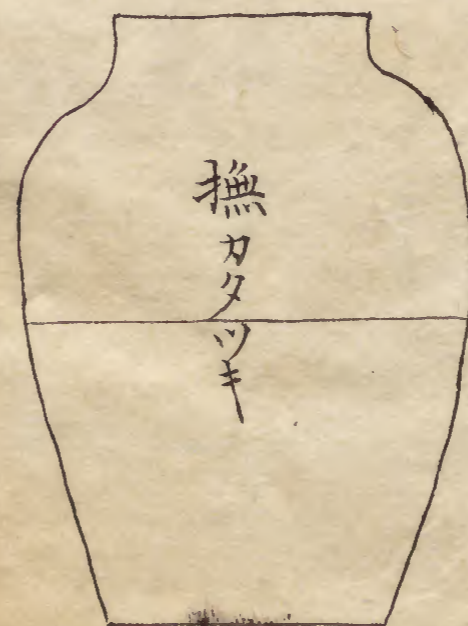 撫カタツキ